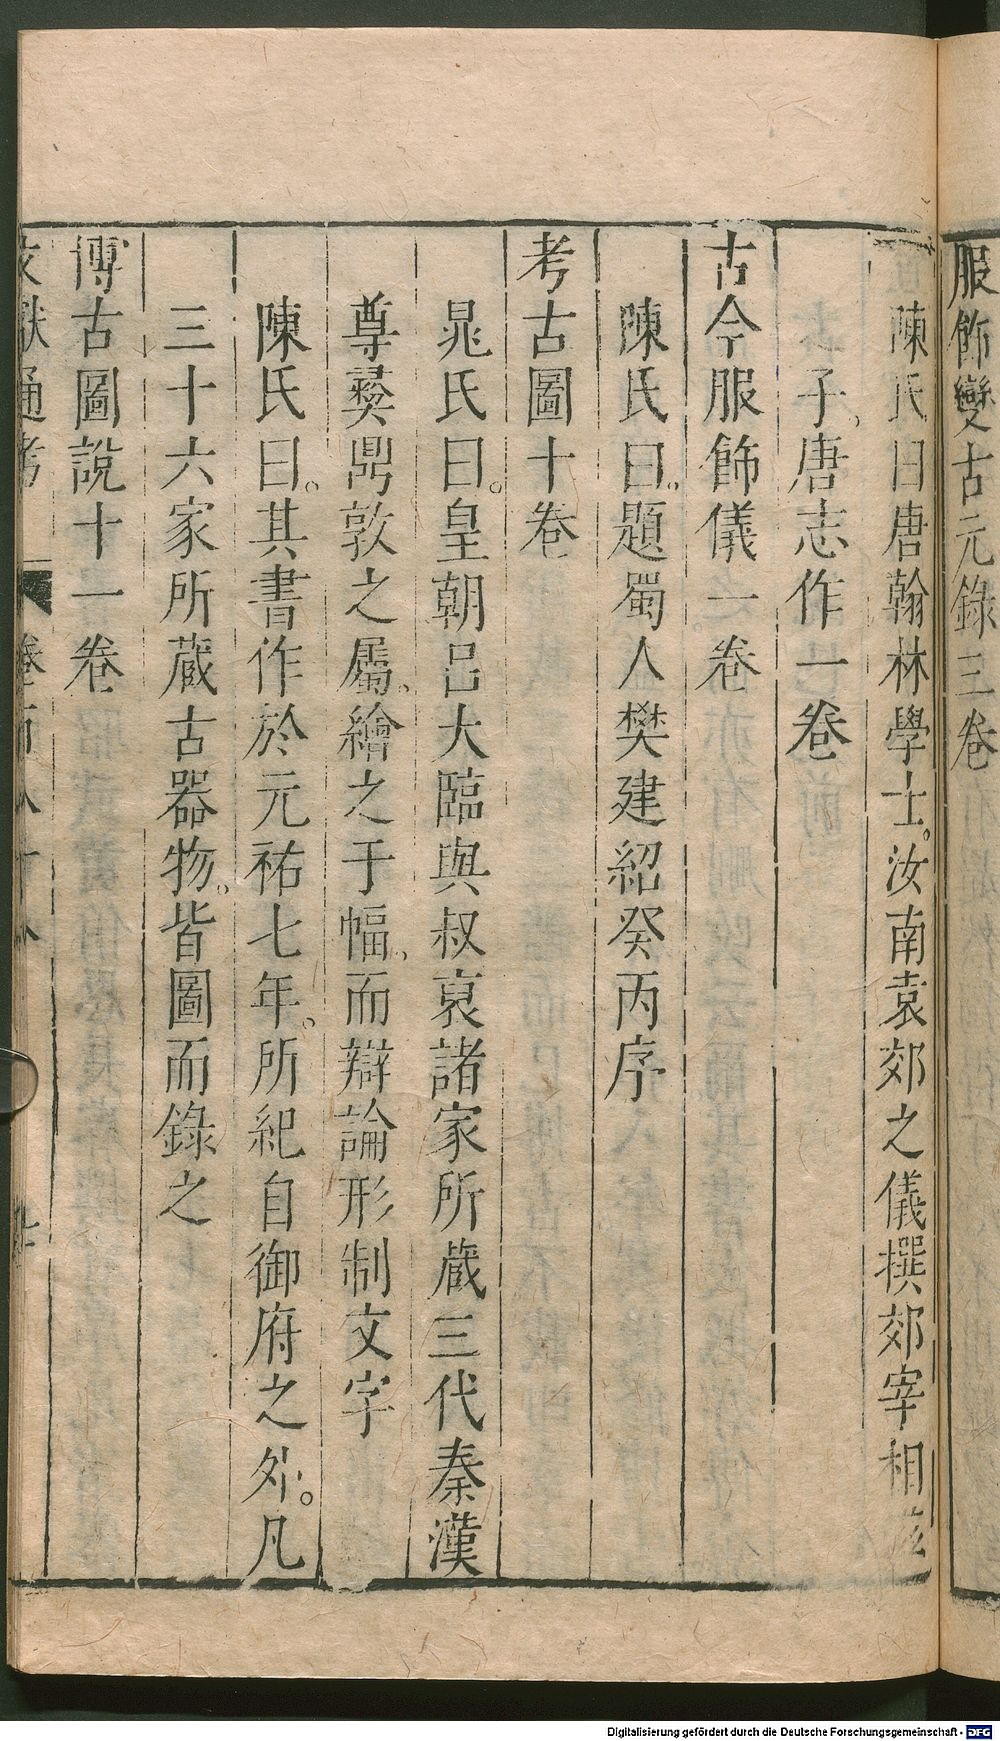 服飾變古元錄三卷
陳氏曰唐翰林學士。汝南袁郊之儀撰郊宰相滋
之子、唐志作一卷
古今服飾儀一卷
陳氏曰。題蜀人樊建紹癸丙序
考古圖十卷
晁氏曰。皇朝呂大臨與叔裒諸家所蔵三代秦漢
尊彛鼎敦之屬、繪之于幅、而辯論形制文字
陳氏曰。其書作於元祐七年。所紀自御府之外。凡
三十六家所蔵古器物。皆圖而錄之
博古圖說十一卷
文獻通考 卷百八十八
Digitalisierung gefördert durch die Deutsche Forschungsgemeinschaft - DFG